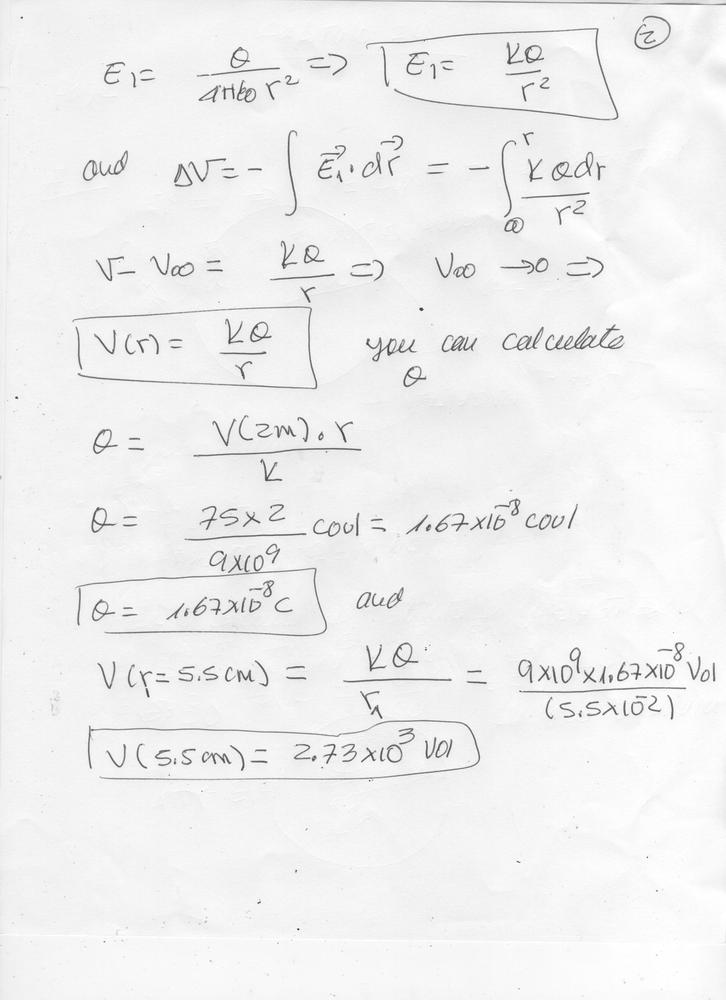 ②
E₁ = Q / 4πε₀ r² => E₁ = KQ / r²
and ΔV = - ∫ E⃗₁ · dr⃗ = - ∫_∞^r KQdr / r²
V - V∞ = KQ / r => V∞ → 0 =>
V(r) = KQ / r you can calculate
Q
Q = V(2m) · r / K
Q = 75 x 2 / 9x10⁹ coul = 1.67x10⁻⁸ coul
Q = 1.67x10⁻⁸ C and
V(r₁ = 5.5 cm) = KQ / r₁ = 9x10⁹ x 1.67x10⁻⁸ Vol / (5.5x10⁻²)
V(5.5 cm) = 2.73x10³ Vol